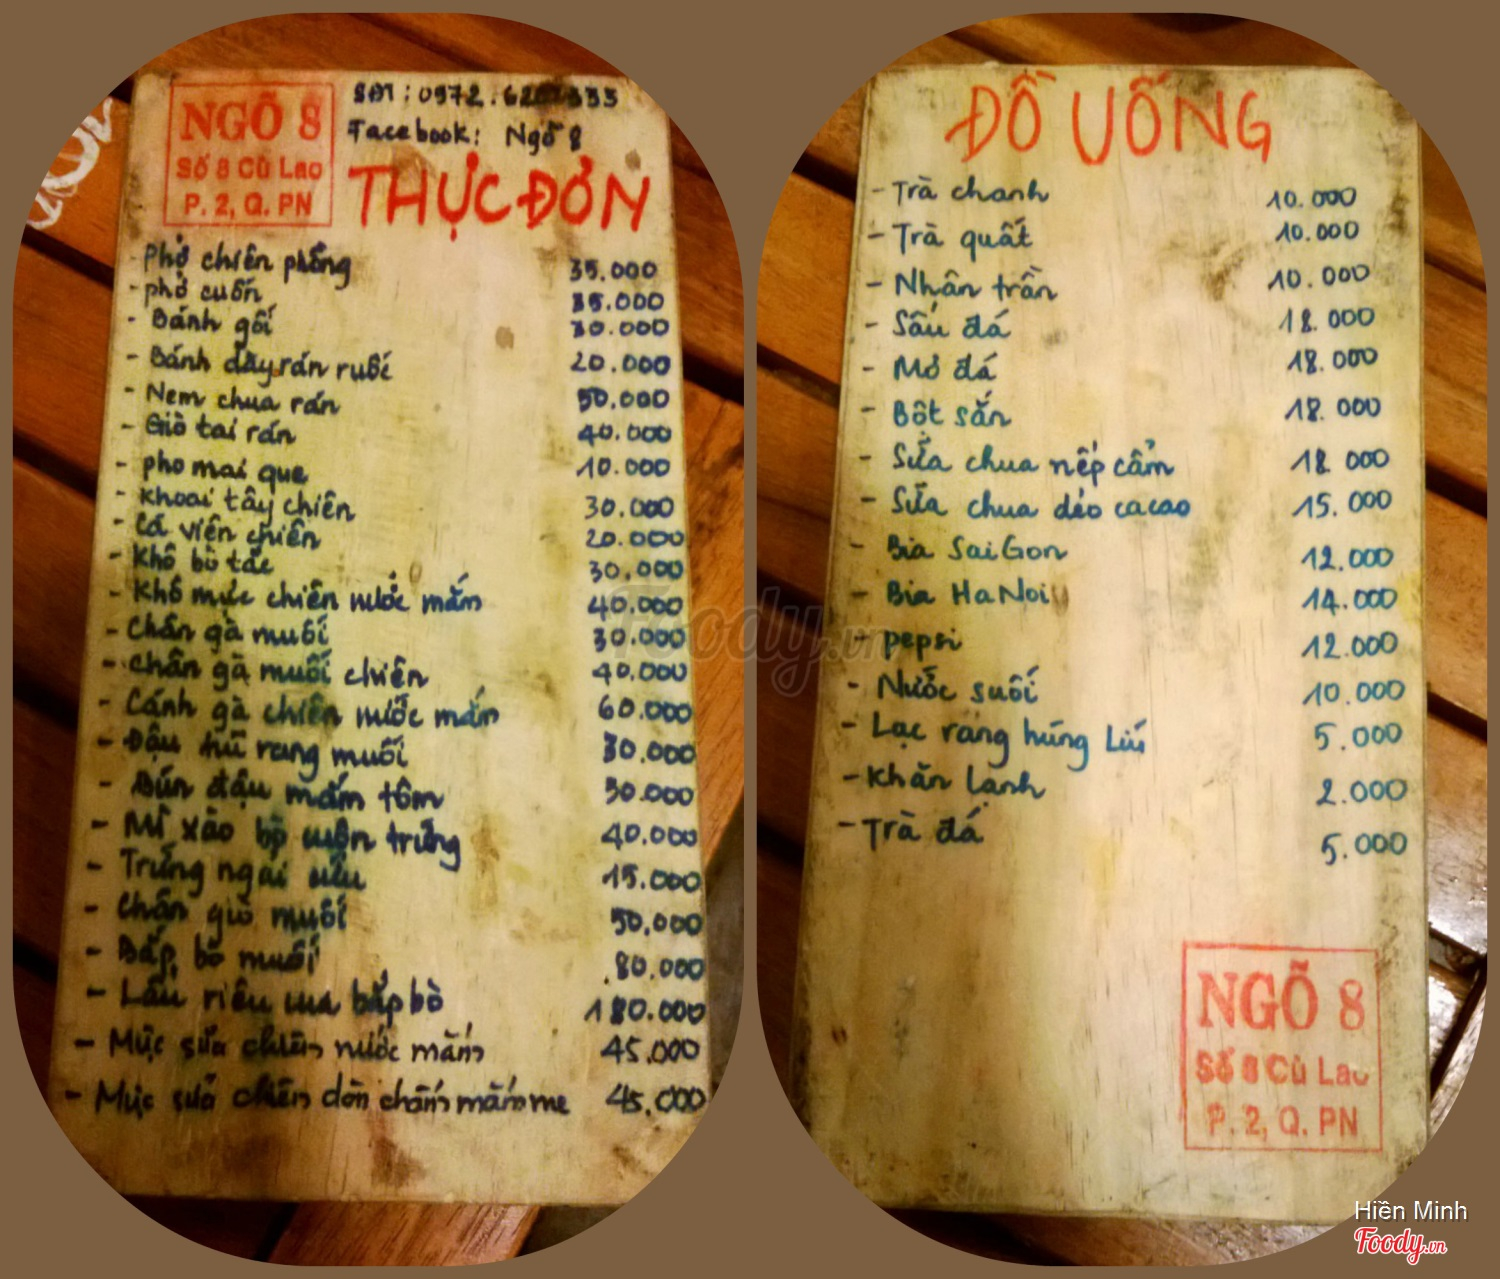 NGÕ 8
Số 8 Cù Lao
P. 2, Q. PN
SĐT: 0972.
Facebook: Ngõ 8
THỰC ĐƠN
Phở chiên phồng 35.000
- phở cuốn 35.000
- Bánh gối 30.000
- Bánh dầy rán ruốc 20.000
- Nem chua rán 50.000
- Giò tai rán 40.000
- pho mai que 10.000
- Khoai tây chiên 30.000
- Cá viên chiên 20.000
- Khô bò tắc 30.000
- Khô mực chiên nước mắm 40.000
- Chân gà muối 30.000
- Chân gà muối chiên 40.000
- Cánh gà chiên nước mắm 60.000
- Đậu hũ rang muối 30.000
- Bún đậu mắm tôm
- Mì xào bò cuộn trứng 40.000
- Trứng ngải cứu 15.000
- Chân giò muối 50.000
- Bắp bò muối 80.000
- Lẩu riêu cua bắp bò 180.000
- Mực sữa chiên nước mắm 45.000
- Mực sữa chiên dòn chấm mắm me 45.000
ĐỒ UỐNG
- Trà chanh 10.000
- Trà quất 10.000
- Nhân trần 10.000
- Sấu đá 18.000
- Mơ đá 18.000
- Bột sắn 18.000
- Sữa chua nếp cẩm 18.000
- Sữa chua dẻo cacao 15.000
- Bia SaiGon 12.000
- Bia HaNoi 14.000
- pepsi 12.000
- Nước suối 10.000
- Lạc rang húng Lìu 5.000
- Khăn lạnh 2.000
- Trà đá 5.000
NGÕ 8
Số 8 Cù Lao
P. 2, Q. PN
Foody.vn
Hiền Minh
Foody.vn